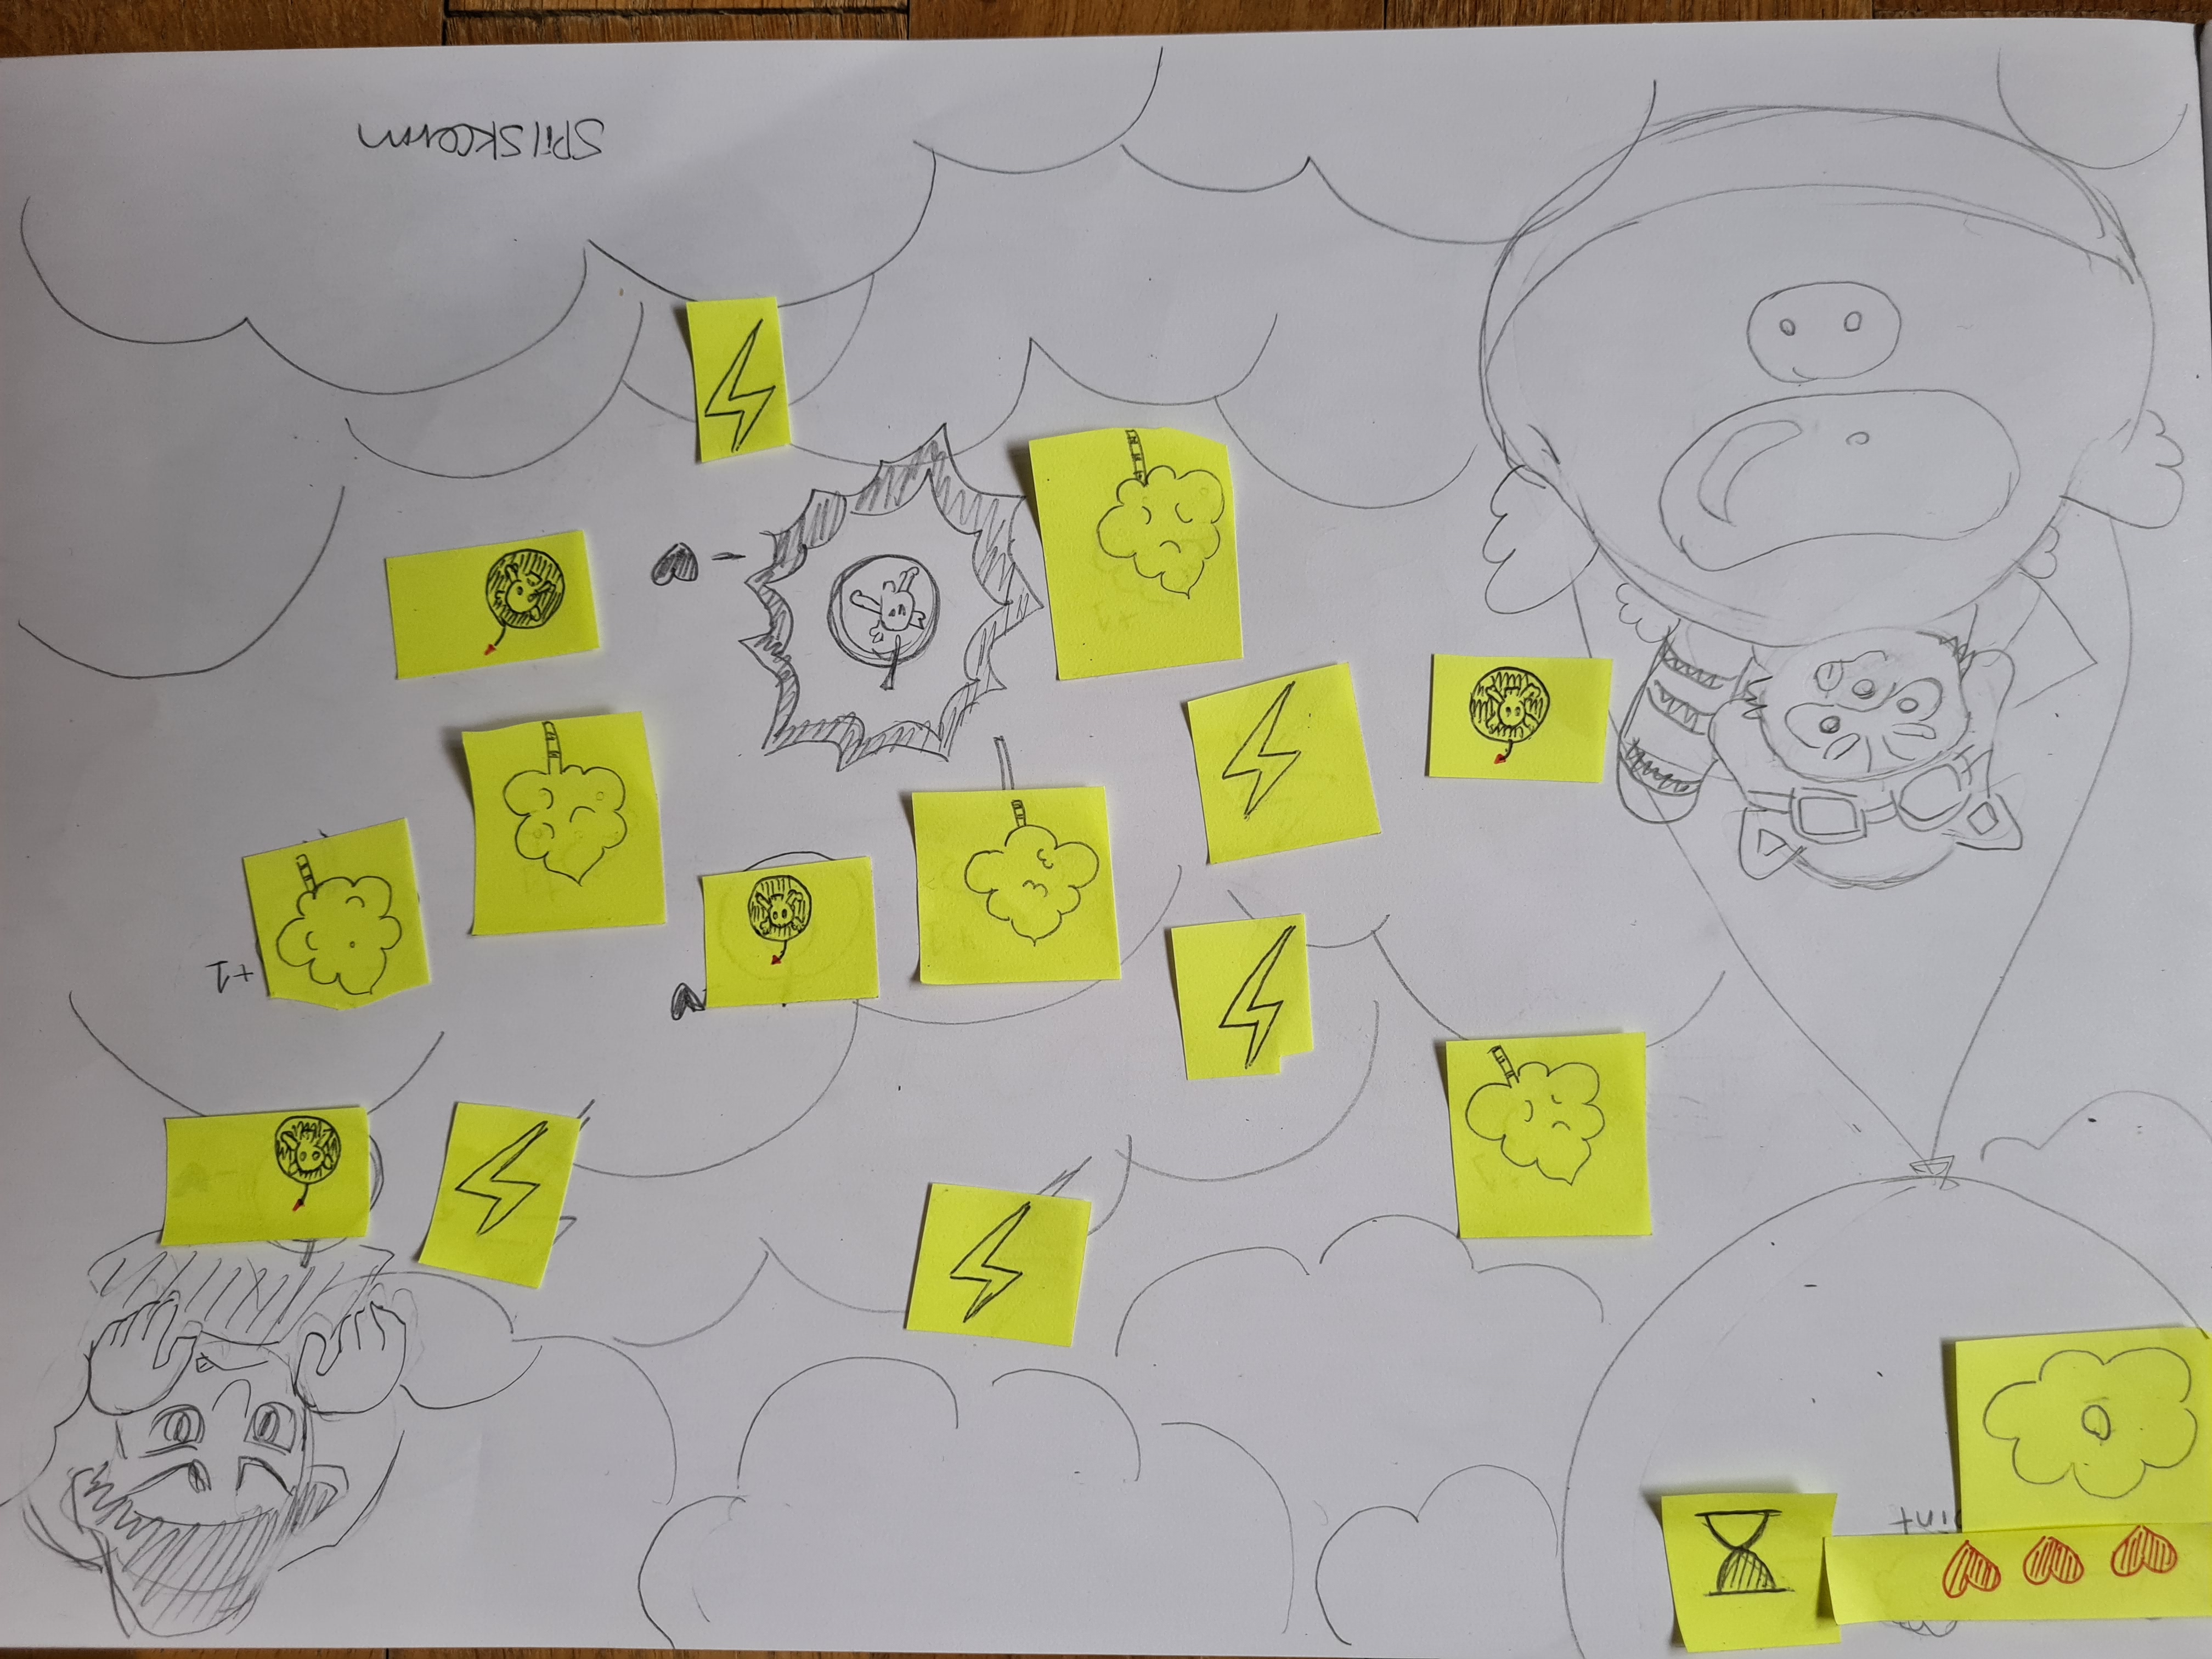 oint
0
+1
spilskærm